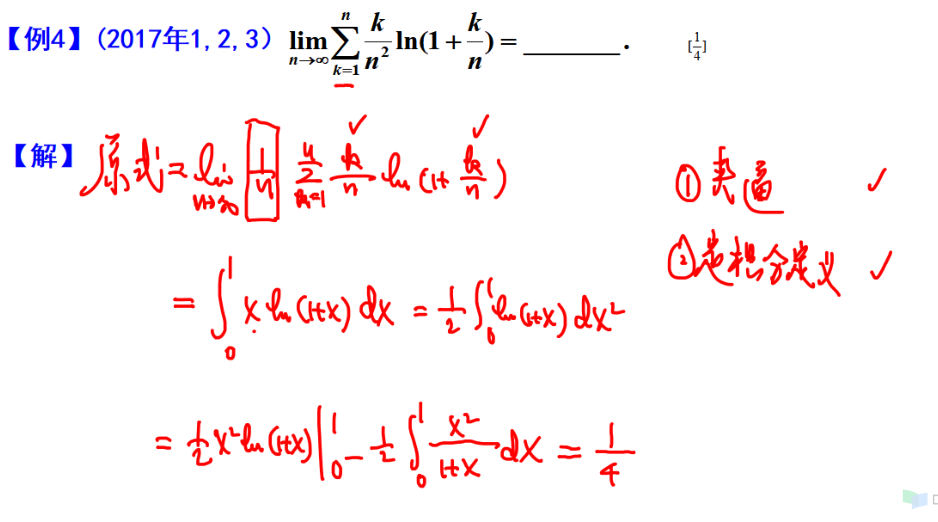 【例4】(2017年1,2,3) lim_{n→∞} ∑_{k=1}^{n} k/n² ln(1+k/n) = ________. [1/4]
【解】原式 = lim_{n→∞} 1/n ∑_{k=1}^{n} k/n ln(1+k/n)
①夹逼 ✓
②定积分定义 ✓
= ∫_0^1 x ln(1+x) dx = 1/2 ∫_0^1 ln(1+x) dx²
= 1/2 x² ln(1+x) |_0^1 - 1/2 ∫_0^1 x²/(1+x) dx = 1/4